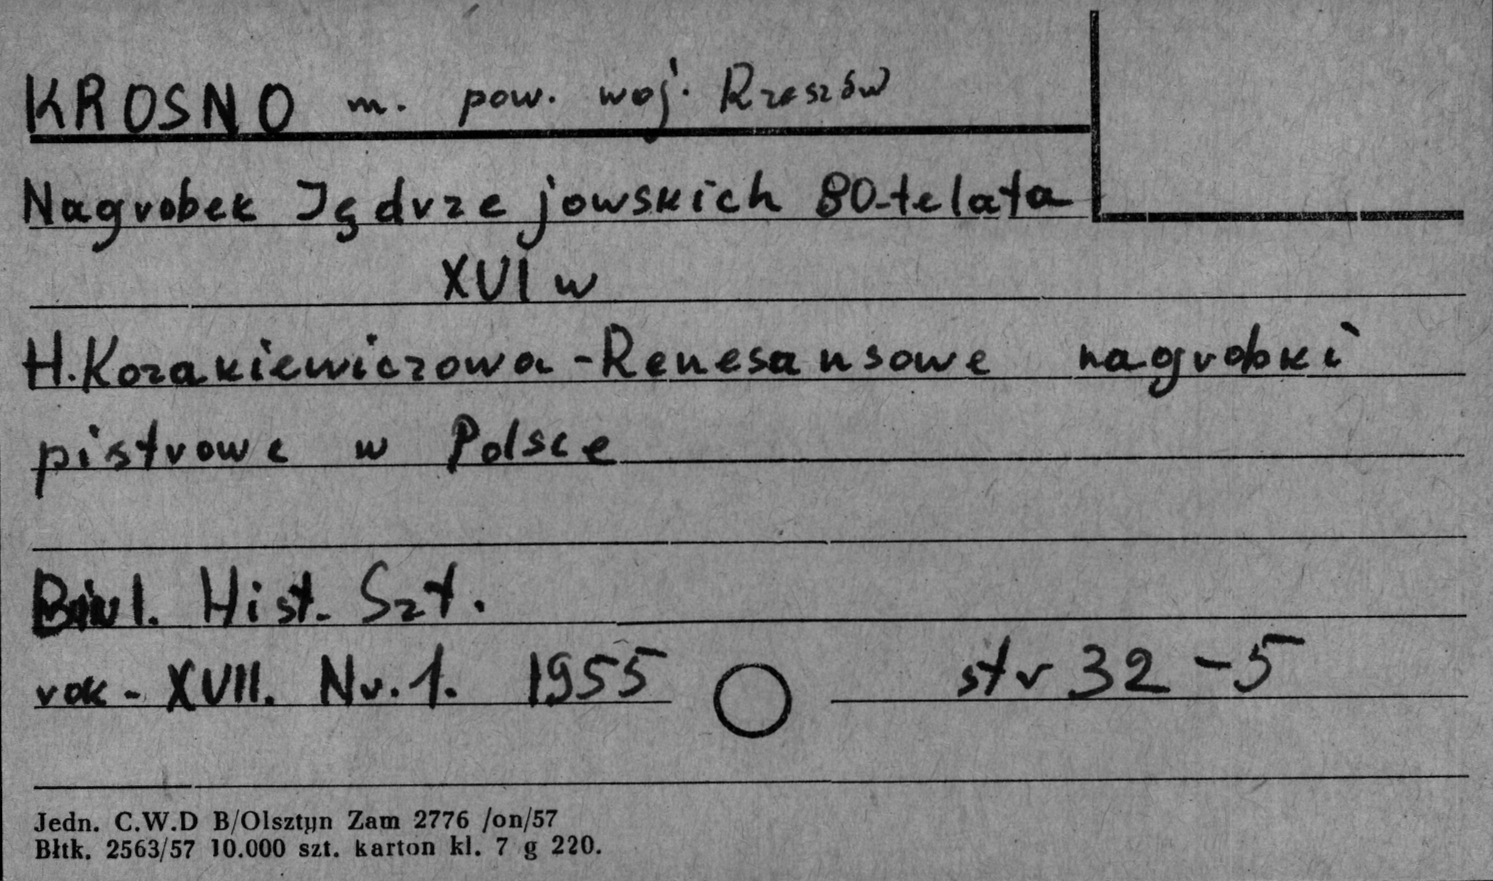 KROSNO m. pow. woj. Rzeszów
Nagrobek Jędrzejowskich 80-te lata
XVI w
H. Kozakiewiczowa - Renesansowe nagrobki
pistrowe w Polsce
Biul. Hist. Szt.
rok - XVII. Nr. 1. 1955 str 32 - 5
Jedn. C.W.D B/Olsztyn Zam 2776 /on/57
Błtk. 2563/57 10.000 szt. karton kl. 7 g 220.